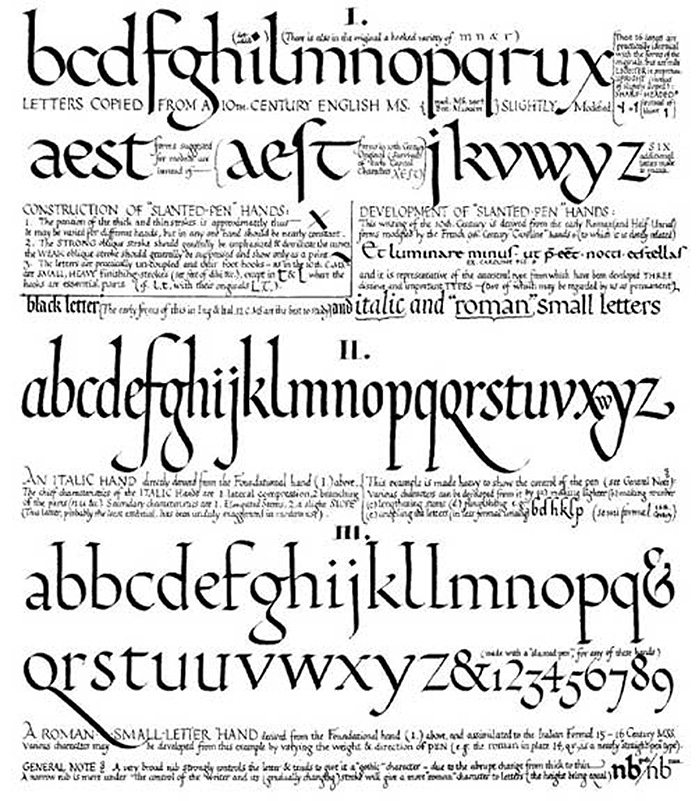 I.
(There is also in the original a hooked variety of m n & r)
bcdfghilmnopqrux
LETTERS COPIED FROM A 10th. CENTURY ENGLISH MS. SLIGHTLY Modified
aest
forms suggested for modern use instead of
(aeſt
jkvwyz
SIX additional letters made to match.
CONSTRUCTION OF "SLANTED-PEN" HANDS:
1. The position of the thick and thin strokes is approximately thus
It may be varied for different hands, but in any one hand should be nearly constant.
2. The STRONG oblique stroke should gracefully be emphasized & dominate the curves,
the WEAK oblique stroke should generally be suppressed and show only as a point
3. The letters are practically un-coupled and their foot hooks – as in the 10th. C. MS.
are SMALL, HEAVY finishing-strokes except in t & l where the
hooks are essential parts (cf. L t, with their originals L T.)
DEVELOPMENT OF "SLANTED-PEN" HANDS:
This writing of the 10th Century is derived from the early Roman (and Half Uncial)
forms modified by the French 9th Century "Caroline" hands (to which it is closely related)
Et luminare minus ut
and it is representative of the ancestral type from which have been developed THREE
distinct and important TYPES – (two of which may be regarded by us as permanent),
black letter (The early forms of this in Eng & Ital. 12 C. MS are the best to study) and italic and "roman" small letters
II.
abcdefghijklmnopqqrstuvxwyz
AN ITALIC HAND directly derived from the Foundational hand (I.) above.
The chief characteristics of the ITALIC HANDS are 1. lateral compression, 2. branching
of the parts (n u &c.) Secondary characteristics are 1. Elongated Stems, 2. a slight SLOPE
(This latter, probably the least essential, has been unduly exaggerated in modern use).
This example is made heavy to show the control of the pen (see General Note):
Various characters can be developed from it by (a) making lighter (b) making narrower
(c) lengthening stems (d) flourishing e.g. bdhklp (semi formal
(e) coupling the letters (in less formal writing)
III.
abbcdefghijkllmnopq&
(made with a "slanted pen", for any of these hands)
qrstuuvwxyz&123456789
A ROMAN SMALL-LETTER HAND derived from the Foundational hand (I.) above, and assimilated to the Italian Formal 15–16 Century MSS.
Various characters may be developed from this example by varying the weight & direction of PEN (e.g. the roman in plate is a nearly straight pen type).
GENERAL NOTE A very broad nib strongly controls the letter & tends to give it a "gothic" character – due to the abrupt change from thick to thin
A narrow nib is more under the control of the Writer and its (gradually changing) stroke will give a more "roman" character to letters (the height being equal) nb/nb